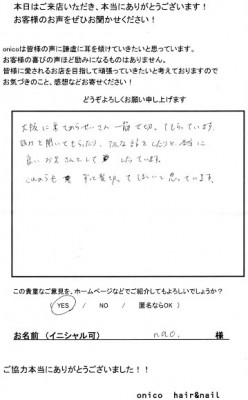 本日はご来店いただき、本当にありがとうございます！
お客様のお声をぜひお聞かせください！
onicoは皆様の声に謙虚に耳を傾けていきたいと思っています。
お客様の喜びの声ほど励みになるものはありません。
皆様に愛されるお店を目指して頑張っていきたいと考えておりますので
お気づきのこと、感想などお寄せください！
どうぞよろしくお願い申し上げます
大阪に来て 一筋で切ってもらっています。
聞いてもらったり、 話をしたりと、本当に
良いお 
 ずっと 切ってほしいと思っています。
この貴重なご意見を、ホームページなどでご紹介してもよろしいでしょうか？
( YES / NO / 匿名ならOK )
お名前（イニシャル可） nao. 様
ご協力本当にありがとうございました！！
onico hair&nail